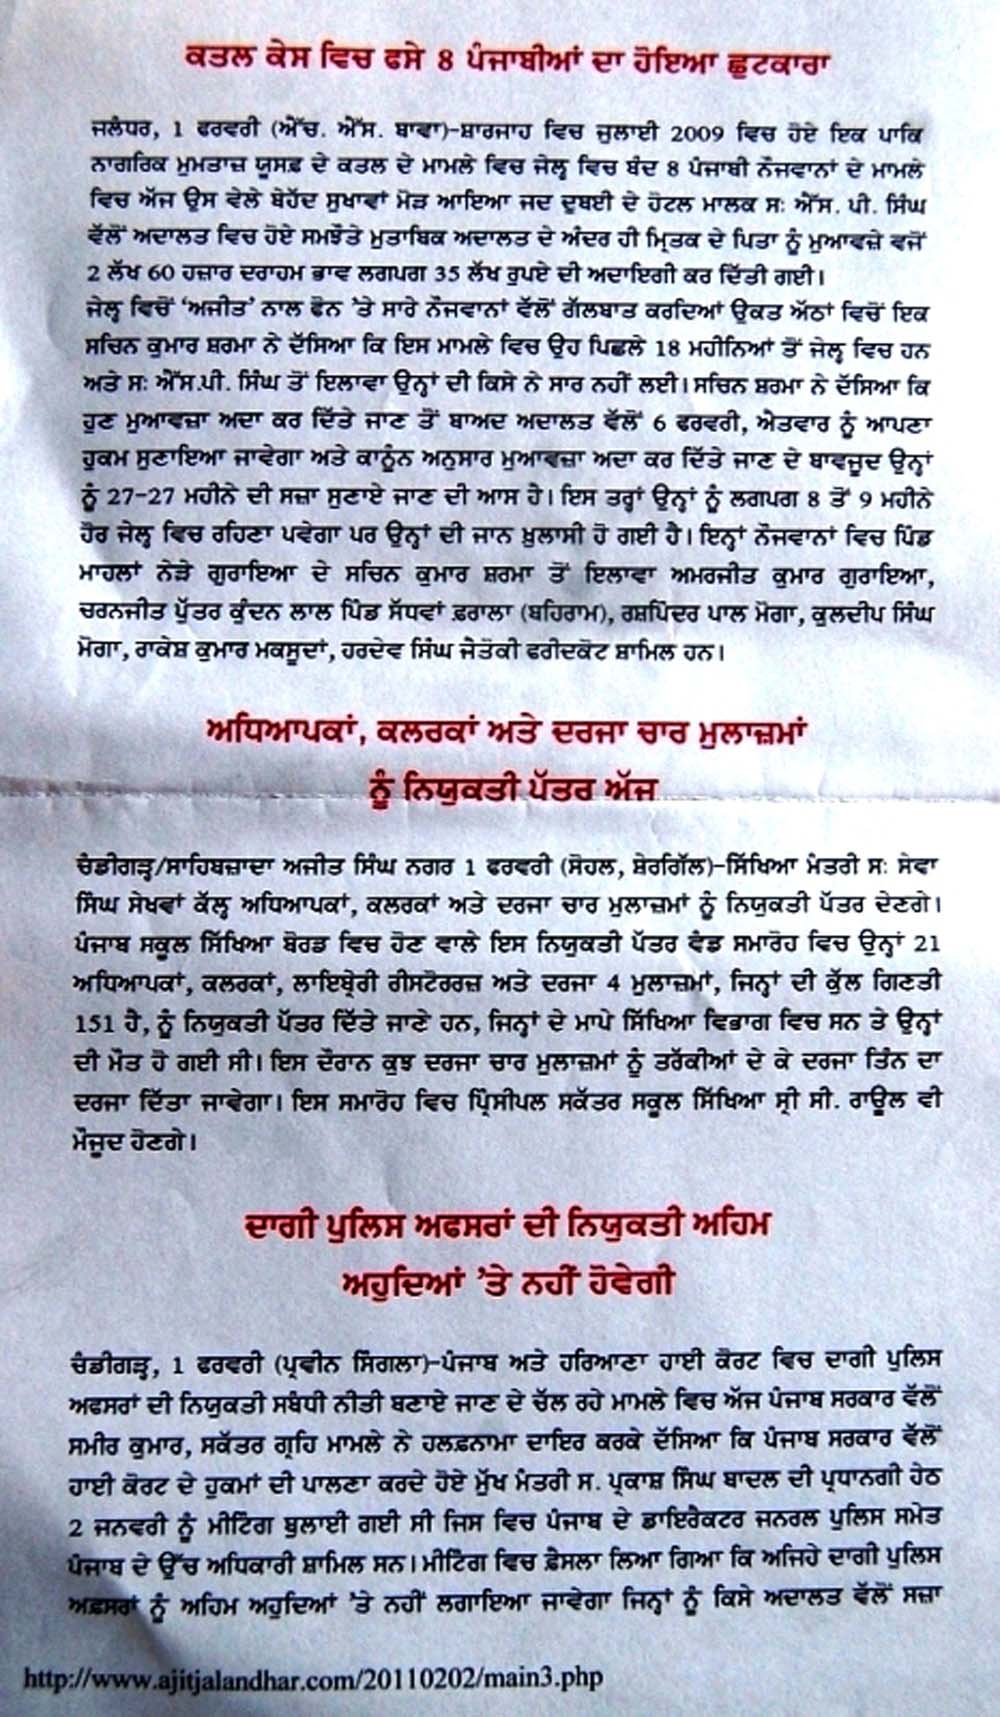 ਕਤਲ ਕੇਸ ਵਿਚ ਫਸੇ 8 ਪੰਜਾਬੀਆਂ ਦਾ ਹੋਇਆ ਛੁਟਕਾਰਾ
ਜਲੰਧਰ, 1 ਫਰਵਰੀ (ਐੱਚ. ਐੱਸ. ਬਾਵਾ)-ਸ਼ਾਰਜਾਹ ਵਿਚ ਜੁਲਾਈ 2009 ਵਿਚ ਹੋਏ ਇਕ ਪਾਕਿ
ਨਾਗਰਿਕ ਮੁਮਤਾਜ਼ ਯੂਸਫ਼ ਦੇ ਕਤਲ ਦੇ ਮਾਮਲੇ ਵਿਚ ਜੇਲ੍ਹ ਵਿਚ ਬੰਦ 8 ਪੰਜਾਬੀ ਨੌਜਵਾਨਾਂ ਦੇ ਮਾਮਲੇ
ਵਿਚ ਅੱਜ ਉਸ ਵੇਲੇ ਬੇਹੱਦ ਸੁਖਾਵਾਂ ਮੋੜ ਆਇਆ ਜਦ ਦੁਬਈ ਦੇ ਹੋਟਲ ਮਾਲਕ ਸ: ਐੱਸ. ਪੀ. ਸਿੰਘ
ਵੱਲੋਂ ਅਦਾਲਤ ਵਿਚ ਹੋਏ ਸਮਝੌਤੇ ਮੁਤਾਬਿਕ ਅਦਾਲਤ ਦੇ ਅੰਦਰ ਹੀ ਮ੍ਰਿਤਕ ਦੇ ਪਿਤਾ ਨੂੰ ਮੁਆਵਜ਼ੇ ਵਜੋਂ
2 ਲੱਖ 60 ਹਜ਼ਾਰ ਦਰਾਹਮ ਭਾਵ ਲਗਪਗ 35 ਲੱਖ ਰੁਪਏ ਦੀ ਅਦਾਇਗੀ ਕਰ ਦਿੱਤੀ ਗਈ।
ਜੇਲ੍ਹ ਵਿਚੋਂ 'ਅਜੀਤ' ਨਾਲ ਫੋਨ 'ਤੇ ਸਾਰੇ ਨੌਜਵਾਨਾਂ ਵੱਲੋਂ ਗੱਲਬਾਤ ਕਰਦਿਆਂ ਉਕਤ ਅੱਠਾਂ ਵਿਚੋਂ ਇਕ
ਸਚਿਨ ਕੁਮਾਰ ਸ਼ਰਮਾ ਨੇ ਦੱਸਿਆ ਕਿ ਇਸ ਮਾਮਲੇ ਵਿਚ ਉਹ ਪਿਛਲੇ 18 ਮਹੀਨਿਆਂ ਤੋਂ ਜੇਲ੍ਹ ਵਿਚ ਹਨ
ਅਤੇ ਸ: ਐੱਸ.ਪੀ. ਸਿੰਘ ਤੋਂ ਇਲਾਵਾ ਉਨ੍ਹਾਂ ਦੀ ਕਿਸੇ ਨੇ ਸਾਰ ਨਹੀਂ ਲਈ। ਸਚਿਨ ਸ਼ਰਮਾ ਨੇ ਦੱਸਿਆ ਕਿ
ਹੁਣ ਮੁਆਵਜ਼ਾ ਅਦਾ ਕਰ ਦਿੱਤੇ ਜਾਣ ਤੋਂ ਬਾਅਦ ਅਦਾਲਤ ਵੱਲੋਂ 6 ਫਰਵਰੀ, ਐਤਵਾਰ ਨੂੰ ਆਪਣਾ
ਹੁਕਮ ਸੁਣਾਇਆ ਜਾਵੇਗਾ ਅਤੇ ਕਾਨੂੰਨ ਅਨੁਸਾਰ ਮੁਆਵਜ਼ਾ ਅਦਾ ਕਰ ਦਿੱਤੇ ਜਾਣ ਦੇ ਬਾਵਜੂਦ ਉਨ੍ਹਾਂ
ਨੂੰ 27-27 ਮਹੀਨੇ ਦੀ ਸਜ਼ਾ ਸੁਣਾਏ ਜਾਣ ਦੀ ਆਸ ਹੈ। ਇਸ ਤਰ੍ਹਾਂ ਉਨ੍ਹਾਂ ਨੂੰ ਲਗਪਗ 8 ਤੋਂ 9 ਮਹੀਨੇ
ਹੋਰ ਜੇਲ੍ਹ ਵਿਚ ਰਹਿਣਾ ਪਵੇਗਾ ਪਰ ਉਨ੍ਹਾਂ ਦੀ ਜਾਨ ਖ਼ੁਲਾਸੀ ਹੋ ਗਈ ਹੈ। ਇਨ੍ਹਾਂ ਨੌਜਵਾਨਾਂ ਵਿਚ ਪਿੰਡ
ਮਾਹਲਾਂ ਨੇੜੇ ਗੁਰਾਇਆ ਦੇ ਸਚਿਨ ਕੁਮਾਰ ਸ਼ਰਮਾ ਤੋਂ ਇਲਾਵਾ ਅਮਰਜੀਤ ਕੁਮਾਰ ਗੁਰਾਇਆ,
ਚਰਨਜੀਤ ਪੁੱਤਰ ਕੁੰਦਨ ਲਾਲ ਪਿੰਡ ਸੱਧਵਾਂ ਫ਼ਰਾਲਾ (ਬਹਿਰਾਮ), ਰਸ਼ਪਿੰਦਰ ਪਾਲ ਮੋਗਾ, ਕੁਲਦੀਪ ਸਿੰਘ
ਮੋਗਾ, ਰਾਕੇਸ਼ ਕੁਮਾਰ ਮਕਸੂਦਾਂ, ਹਰਦੇਵ ਸਿੰਘ ਜੈਤੋਕੀ ਫਰੀਦਕੋਟ ਸ਼ਾਮਿਲ ਹਨ।
ਅਧਿਆਪਕਾਂ, ਕਲਰਕਾਂ ਅਤੇ ਦਰਜਾ ਚਾਰ ਮੁਲਾਜ਼ਮਾਂ
ਨੂੰ ਨਿਯੁਕਤੀ ਪੱਤਰ ਅੱਜ
ਚੰਡੀਗੜ੍ਹ/ਸਾਹਿਬਜ਼ਾਦਾ ਅਜੀਤ ਸਿੰਘ ਨਗਰ 1 ਫਰਵਰੀ (ਸੋਹਲ, ਸ਼ੇਰਗਿੱਲ)-ਸਿੱਖਿਆ ਮੰਤਰੀ ਸ: ਸੇਵਾ
ਸਿੰਘ ਸੇਖਵਾਂ ਕੱਲ੍ਹ ਅਧਿਆਪਕਾਂ, ਕਲਰਕਾਂ ਅਤੇ ਦਰਜਾ ਚਾਰ ਮੁਲਾਜ਼ਮਾਂ ਨੂੰ ਨਿਯੁਕਤੀ ਪੱਤਰ ਦੇਣਗੇ।
ਪੰਜਾਬ ਸਕੂਲ ਸਿੱਖਿਆ ਬੋਰਡ ਵਿਚ ਹੋਣ ਵਾਲੇ ਇਸ ਨਿਯੁਕਤੀ ਪੱਤਰ ਵੰਡ ਸਮਾਰੋਹ ਵਿਚ ਉਨ੍ਹਾਂ 21
ਅਧਿਆਪਕਾਂ, ਕਲਰਕਾਂ, ਲਾਇਬ੍ਰੇਰੀ ਰੀਸਟੋਰਰਜ਼ ਅਤੇ ਦਰਜਾ 4 ਮੁਲਾਜ਼ਮਾਂ, ਜਿਨ੍ਹਾਂ ਦੀ ਕੁੱਲ ਗਿਣਤੀ
151 ਹੈ, ਨੂੰ ਨਿਯੁਕਤੀ ਪੱਤਰ ਦਿੱਤੇ ਜਾਣੇ ਹਨ, ਜਿਨ੍ਹਾਂ ਦੇ ਮਾਪੇ ਸਿੱਖਿਆ ਵਿਭਾਗ ਵਿਚ ਸਨ ਤੇ ਉਨ੍ਹਾਂ
ਦੀ ਮੌਤ ਹੋ ਗਈ ਸੀ। ਇਸ ਦੌਰਾਨ ਕੁਝ ਦਰਜਾ ਚਾਰ ਮੁਲਾਜ਼ਮਾਂ ਨੂੰ ਤਰੱਕੀਆਂ ਦੇ ਕੇ ਦਰਜਾ ਤਿੰਨ ਦਾ
ਦਰਜਾ ਦਿੱਤਾ ਜਾਵੇਗਾ। ਇਸ ਸਮਾਰੋਹ ਵਿਚ ਪ੍ਰਿੰਸੀਪਲ ਸਕੱਤਰ ਸਕੂਲ ਸਿੱਖਿਆ ਸ੍ਰੀ ਸੀ. ਰਾਊਲ ਵੀ
ਮੌਜੂਦ ਹੋਣਗੇ।
ਦਾਗੀ ਪੁਲਿਸ ਅਫਸਰਾਂ ਦੀ ਨਿਯੁਕਤੀ ਅਹਿਮ
ਅਹੁਦਿਆਂ 'ਤੇ ਨਹੀਂ ਹੋਵੇਗੀ
ਚੰਡੀਗੜ੍ਹ, 1 ਫਰਵਰੀ (ਪ੍ਰਵੀਨ ਸਿੰਗਲਾ)-ਪੰਜਾਬ ਅਤੇ ਹਰਿਆਣਾ ਹਾਈ ਕੋਰਟ ਵਿਚ ਦਾਗੀ ਪੁਲਿਸ
ਅਫਸਰਾਂ ਦੀ ਨਿਯੁਕਤੀ ਸਬੰਧੀ ਨੀਤੀ ਬਣਾਏ ਜਾਣ ਦੇ ਚੱਲ ਰਹੇ ਮਾਮਲੇ ਵਿਚ ਅੱਜ ਪੰਜਾਬ ਸਰਕਾਰ ਵੱਲੋਂ
ਸਮੀਰ ਕੁਮਾਰ, ਸਕੱਤਰ ਗ੍ਰਹਿ ਮਾਮਲੇ ਨੇ ਹਲਫ਼ਨਾਮਾ ਦਾਇਰ ਕਰਕੇ ਦੱਸਿਆ ਕਿ ਪੰਜਾਬ ਸਰਕਾਰ ਵੱਲੋਂ
ਹਾਈ ਕੋਰਟ ਦੇ ਹੁਕਮਾਂ ਦੀ ਪਾਲਣਾ ਕਰਦੇ ਹੋਏ ਮੁੱਖ ਮੰਤਰੀ ਸ. ਪ੍ਰਕਾਸ਼ ਸਿੰਘ ਬਾਦਲ ਦੀ ਪ੍ਰਧਾਨਗੀ ਹੇਠ
2 ਜਨਵਰੀ ਨੂੰ ਮੀਟਿੰਗ ਬੁਲਾਈ ਗਈ ਸੀ ਜਿਸ ਵਿਚ ਪੰਜਾਬ ਦੇ ਡਾਇਰੈਕਟਰ ਜਨਰਲ ਪੁਲਿਸ ਸਮੇਤ
ਪੰਜਾਬ ਦੇ ਉੱਚ ਅਧਿਕਾਰੀ ਸ਼ਾਮਿਲ ਸਨ। ਮੀਟਿੰਗ ਵਿਚ ਫ਼ੈਸਲਾ ਲਿਆ ਗਿਆ ਕਿ ਅਜਿਹੇ ਦਾਗੀ ਪੁਲਿਸ
ਅਫ਼ਸਰਾਂ ਨੂੰ ਅਹਿਮ ਅਹੁਦਿਆਂ 'ਤੇ ਨਹੀਂ ਲਗਾਇਆ ਜਾਵੇਗਾ ਜਿਨ੍ਹਾਂ ਨੂੰ ਕਿਸੇ ਅਦਾਲਤ ਵੱਲੋਂ ਸਜ਼ਾ
http://www.ajitjalandhar.com/20110202/main3.php